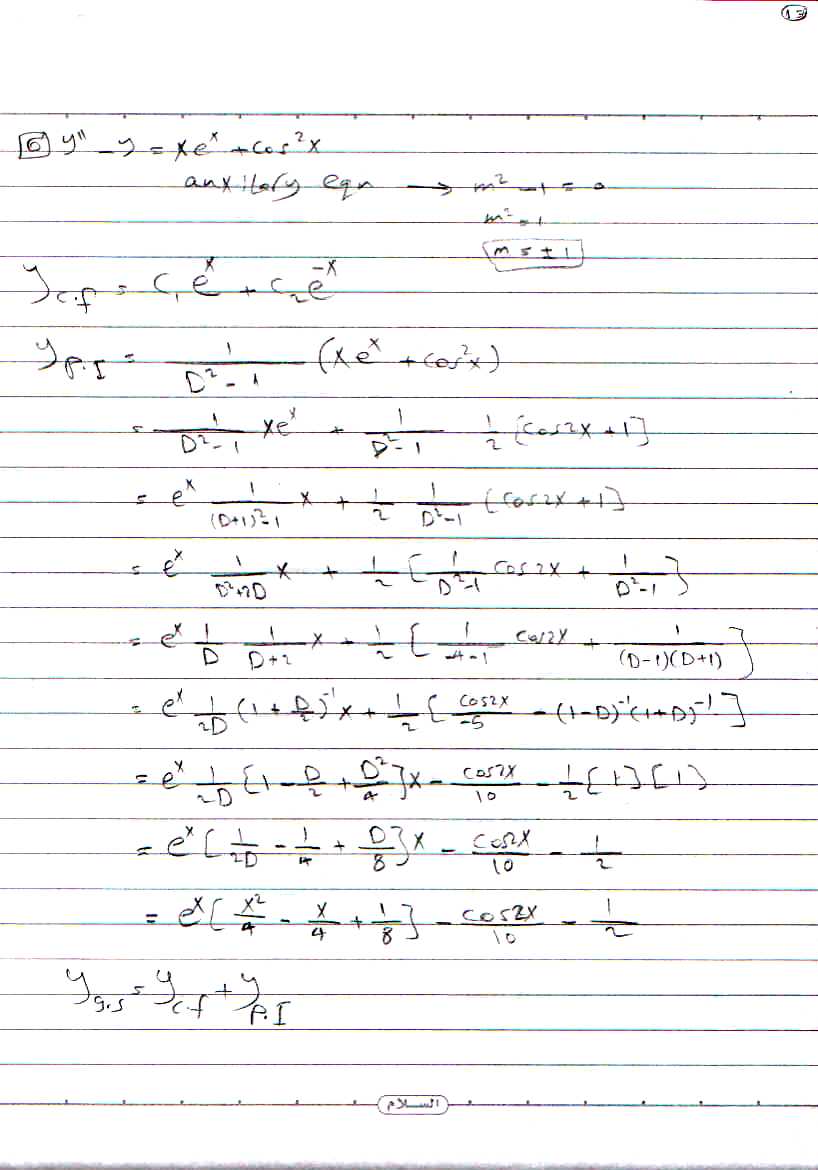 13
6 y'' - y = xe^x + cos^2 x
auxilary eqn → m^2 - 1 = 0
m^2 = 1
m = ±1
y_{c.f} = C_1 e^x + C_2 e^{-x}
y_{P.I} = \frac{1}{D^2-1} (xe^x + cos^2 x)
= \frac{1}{D^2-1} xe^x + \frac{1}{D^2-1} \frac{1}{2} [cos2x + 1]
= e^x \frac{1}{(D+1)^2-1} x + \frac{1}{2} \frac{1}{D^2-1} [cos2x + 1]
= e^x \frac{1}{D^2+2D} x + \frac{1}{2} [\frac{1}{D^2-1} cos2x + \frac{1}{D^2-1}]
= e^x \frac{1}{D} \frac{1}{D+2} x + \frac{1}{2} [\frac{1}{-4-1} cos2x + \frac{1}{(D-1)(D+1)}]
= e^x \frac{1}{2D} (1 + \frac{D}{2})^{-1} x + \frac{1}{2} [\frac{cos2x}{-5} - (1-D)^{-1} (1+D)^{-1}]
= e^x \frac{1}{2D} [1 - \frac{D}{2} + \frac{D^2}{4}] x - \frac{cos2x}{10} - \frac{1}{2} [1] [1]
= e^x [\frac{1}{2D} - \frac{1}{4} + \frac{D}{8}] x - \frac{cos2x}{10} - \frac{1}{2}
= e^x [\frac{x^2}{4} - \frac{x}{4} + \frac{1}{8}] - \frac{cos2x}{10} - \frac{1}{2}
y_{g.s} = y_{c.f} + y_{P.I}
السلام